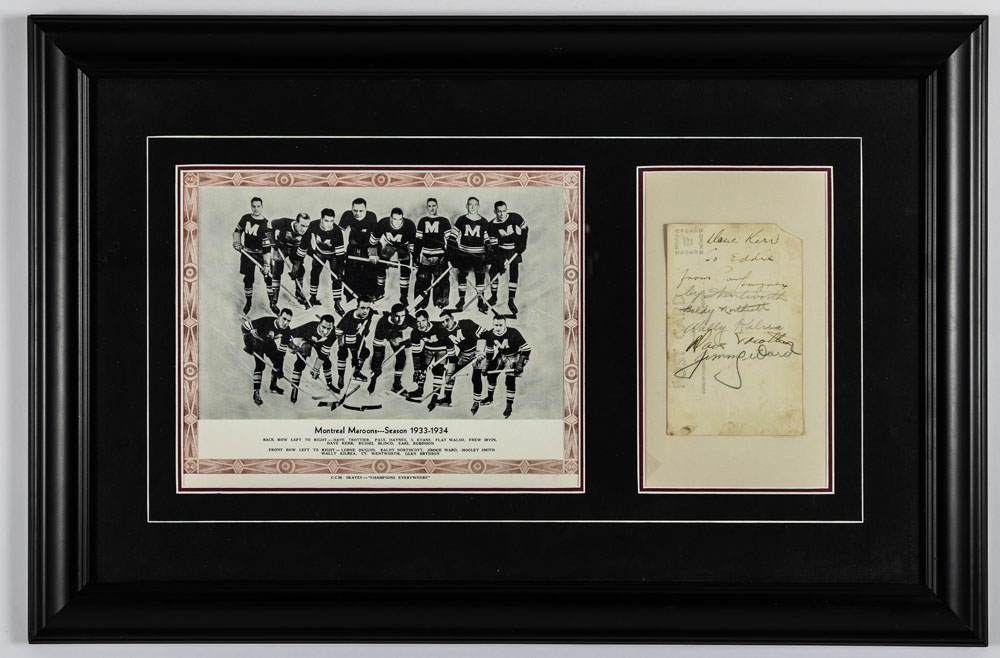 M M M M M M M M
Montreal Maroons---Season 1933-1934
BACK ROW LEFT TO RIGHT—DAVE TROTTIER, PAUL HAYNES, S. EVANS, FLAT WALSH, FREW IRVIN,
DAVE KERR, RUSSEL BLINCO, EARL ROBINSON
FRONT ROW LEFT TO RIGHT—LORNE DUGUID, BALDY NORTHCOTT, JIMMIE WARD, HOOLEY SMITH
WALLY KILREA, CY. WENTWORTH, GLEN BRYDSON
C.C.M. SKATES—"CHAMPIONS EVERYWHERE"
Dave Kerr
To Eddie
from Paul Haynes
Cy Wentworth
Baldy Northcott
Wally Kilrea
Dave Trottier
Jimmy Ward
POST CARD